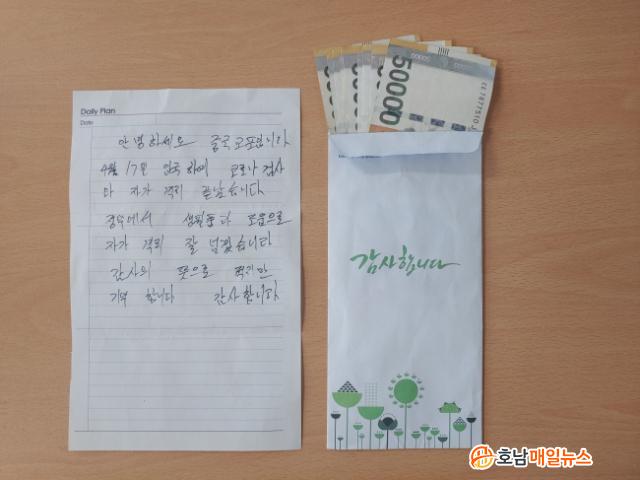 Daily Plan
Date
안녕하세요 중국교포입니다
4월 17일 입국하여 코로나 검사
다 자가 격리 끝났습니다
정부에서 생필품과 도움으로
자가 격리 잘 넘겼습니다
감사의 뜻으로 적지만
기부 합니다 감사합니다
50000
50000
감사합니다
호남매일뉴스